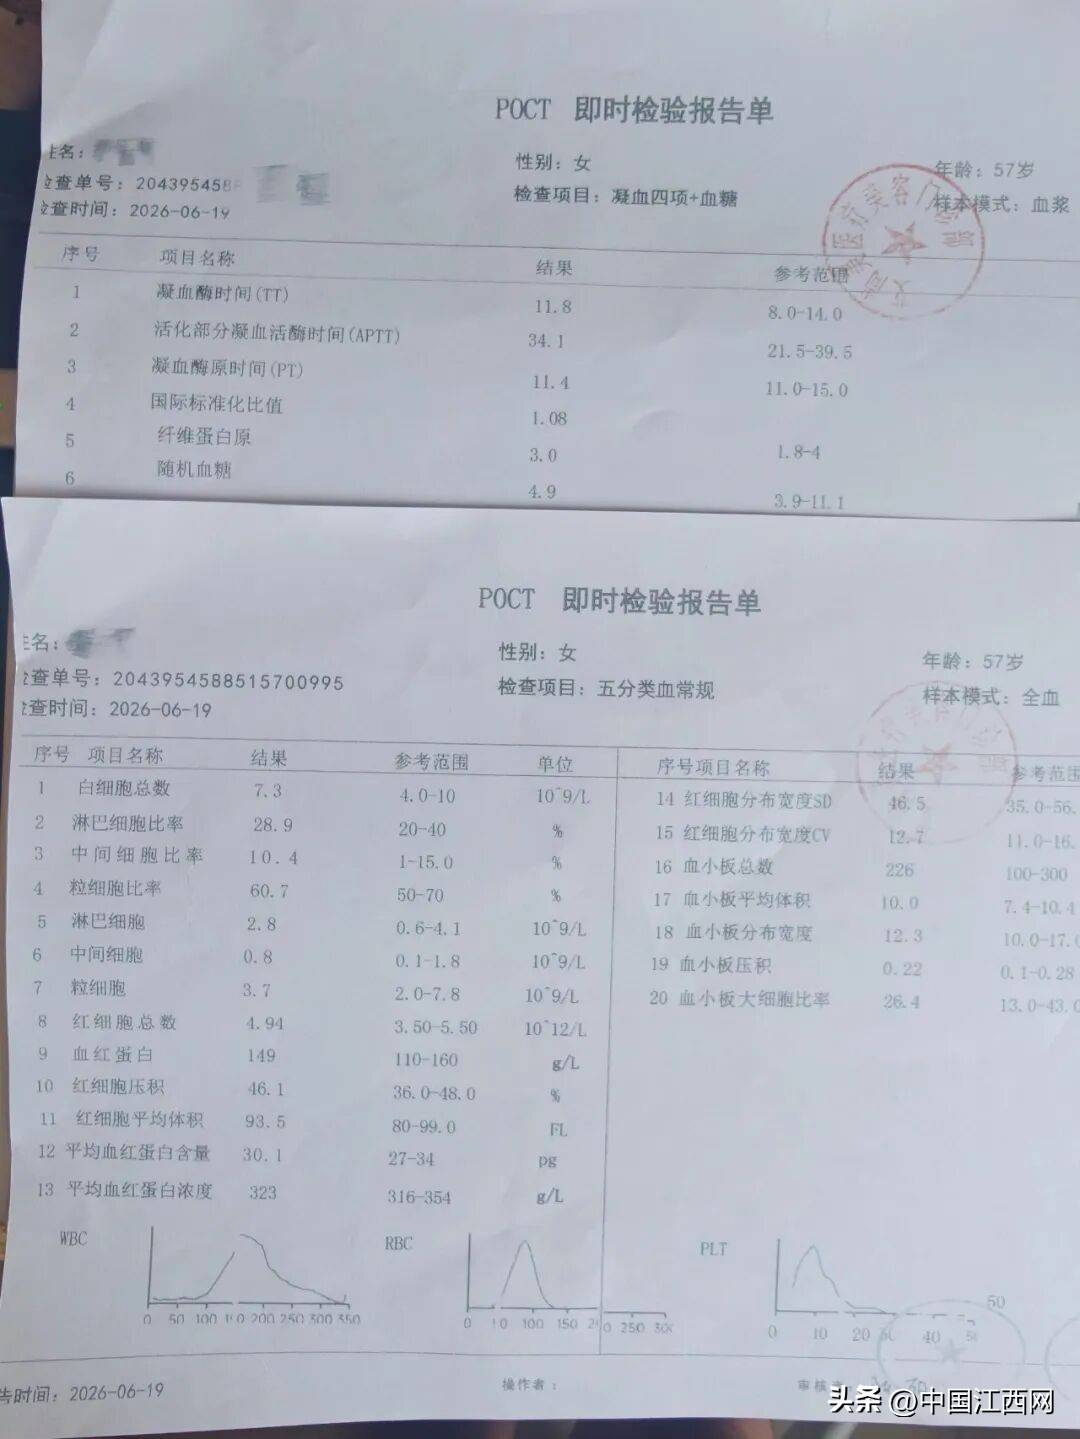 POCT 即时检验报告单
姓名：
性别：女
年龄：57岁
检查单号：204395458
检查项目：凝血四项+血糖
样本模式：血浆
检查时间：2026-06-19
序号 项目名称 结果 参考范围
1 凝血酶时间(TT) 11.8 8.0-14.0
2 活化部分凝血活酶时间(APTT) 34.1 21.5-39.5
3 凝血酶原时间(PT) 11.4 11.0-15.0
4 国际标准化比值 1.08
5 纤维蛋白原 3.0 1.8-4
6 随机血糖 4.9 3.9-11.1
POCT 即时检验报告单
姓名：
性别：女
年龄：57岁
检查单号：2043954588515700995
检查项目：五分类血常规
样本模式：全血
检查时间：2026-06-19
序号 项目名称 结果 参考范围 单位 序号项目名称 结果 参考范围
1 白细胞总数 7.3 4.0-10 10^9/L 14 红细胞分布宽度SD 46.5 35.0-56.
2 淋巴细胞比率 28.9 20-40 % 15 红细胞分布宽度CV 12.7 11.0-16.
3 中间细胞比率 10.4 1-15.0 % 16 血小板总数 226 100-300
4 粒细胞比率 60.7 50-70 % 17 血小板平均体积 10.0 7.4-10.4
5 淋巴细胞 2.8 0.6-4.1 10^9/L 18 血小板分布宽度 12.3 10.0-17.0
6 中间细胞 0.8 0.1-1.8 10^9/L 19 血小板压积 0.22 0.1-0.28
7 粒细胞 3.7 2.0-7.8 10^9/L 20 血小板大细胞比率 26.4 13.0-43.0
8 红细胞总数 4.94 3.50-5.50 10^12/L
9 血红蛋白 149 110-160 g/L
10 红细胞压积 46.1 36.0-48.0 %
11 红细胞平均体积 93.5 80-99.0 FL
12 平均血红蛋白含量 30.1 27-34 pg
13 平均血红蛋白浓度 323 316-354 g/L
WBC RBC PLT
0 50 100 150 200 250 300 350
0 100 150 250 300
0 10 20 40 50
报告时间：2026-06-19 操作者： 审核者
头条 @中国江西网